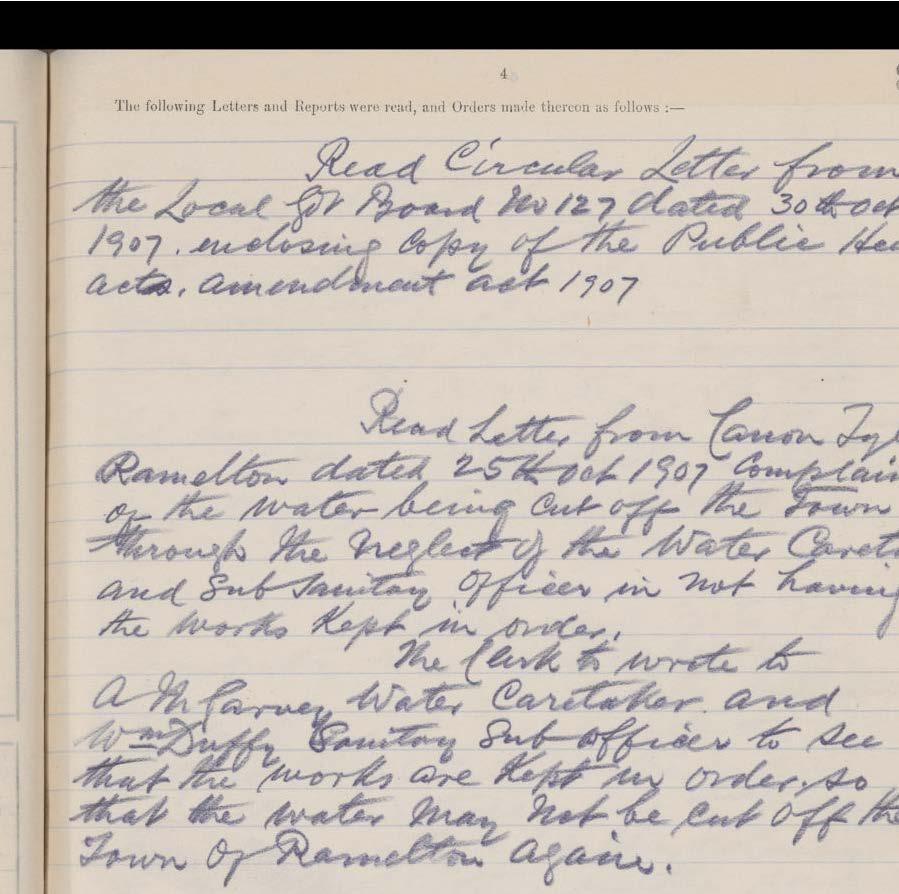 4
The following Letters and Reports were read, and Orders made thereon as follows :—
Read Circular Letter from
the Local Gvt Board No 127 dated 30th Oct
1907. enclosing Copy of the Public Hea
acts. amendment act 1907
Read Letter from Canon
Ramelton dated 25th Oct 1907 Complain
of the water being cut off the Town
through the neglect of the Water Caret
and Sub Sanitary Officer in not having
the works Kept in order.
The Clerk to wrote to
A McGarvey Water Caretaker. and
Wm Duffy Sanitary Sub officer to see
that the works are Kept in order. so
that the water may not be cut off the
Town Of Ramelton again.